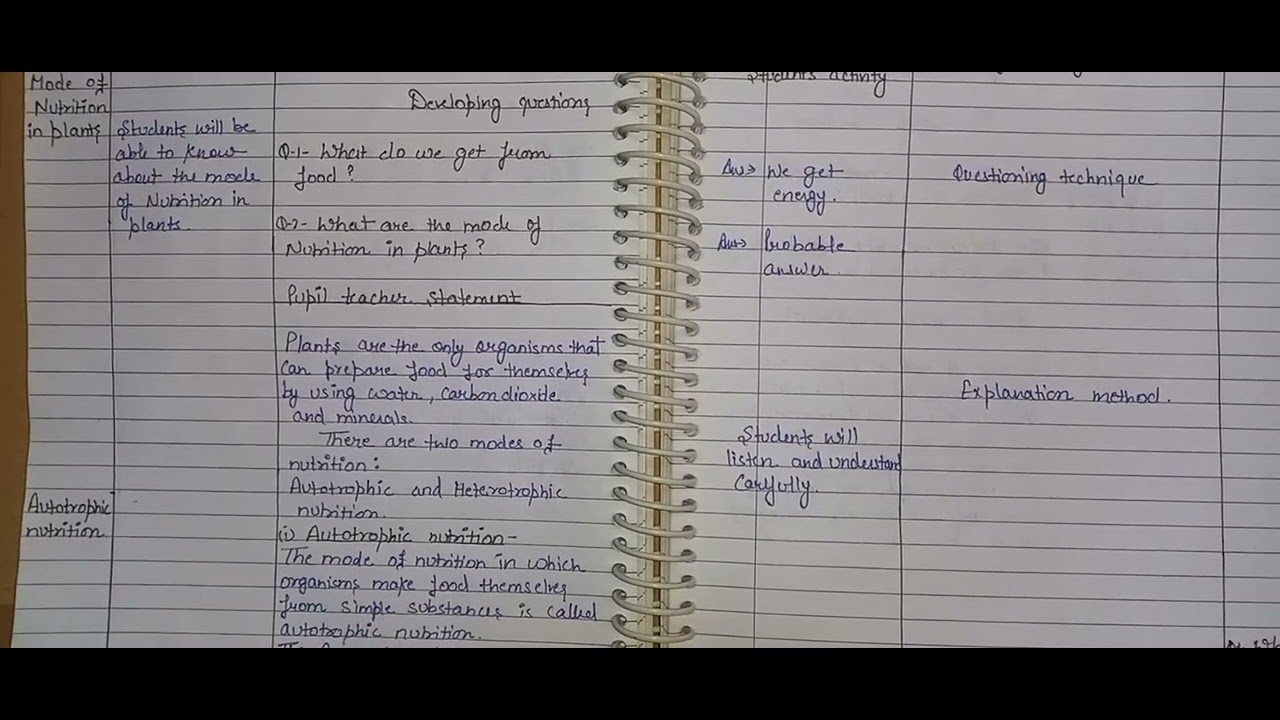 Mode of
Nutrition
in plants
Students will be
able to know
about the mode
of Nutrition in
plants.
Autotrophic
nutrition
Developing questions
Q-1- What do we get from
food?
Q-2- What are the mode of
Nutrition in plants?
Pupil teacher statement
Plants are the only organisms that
can prepare food for themselves
by using water, carbondioxide
and minerals.
There are two modes of
nutrition:
Autotrophic and Heterotrophic
nutrition.
(i) Autotrophic nutrition-
The mode of nutrition in which
organisms make food themselves
from simple substances is called
autotrophic nutrition.
Students activity
Ans→ We get
energy.
Ans→ Probable
answer.
Students will
listen and understand
Carefully.
Questioning technique
Explanation method.